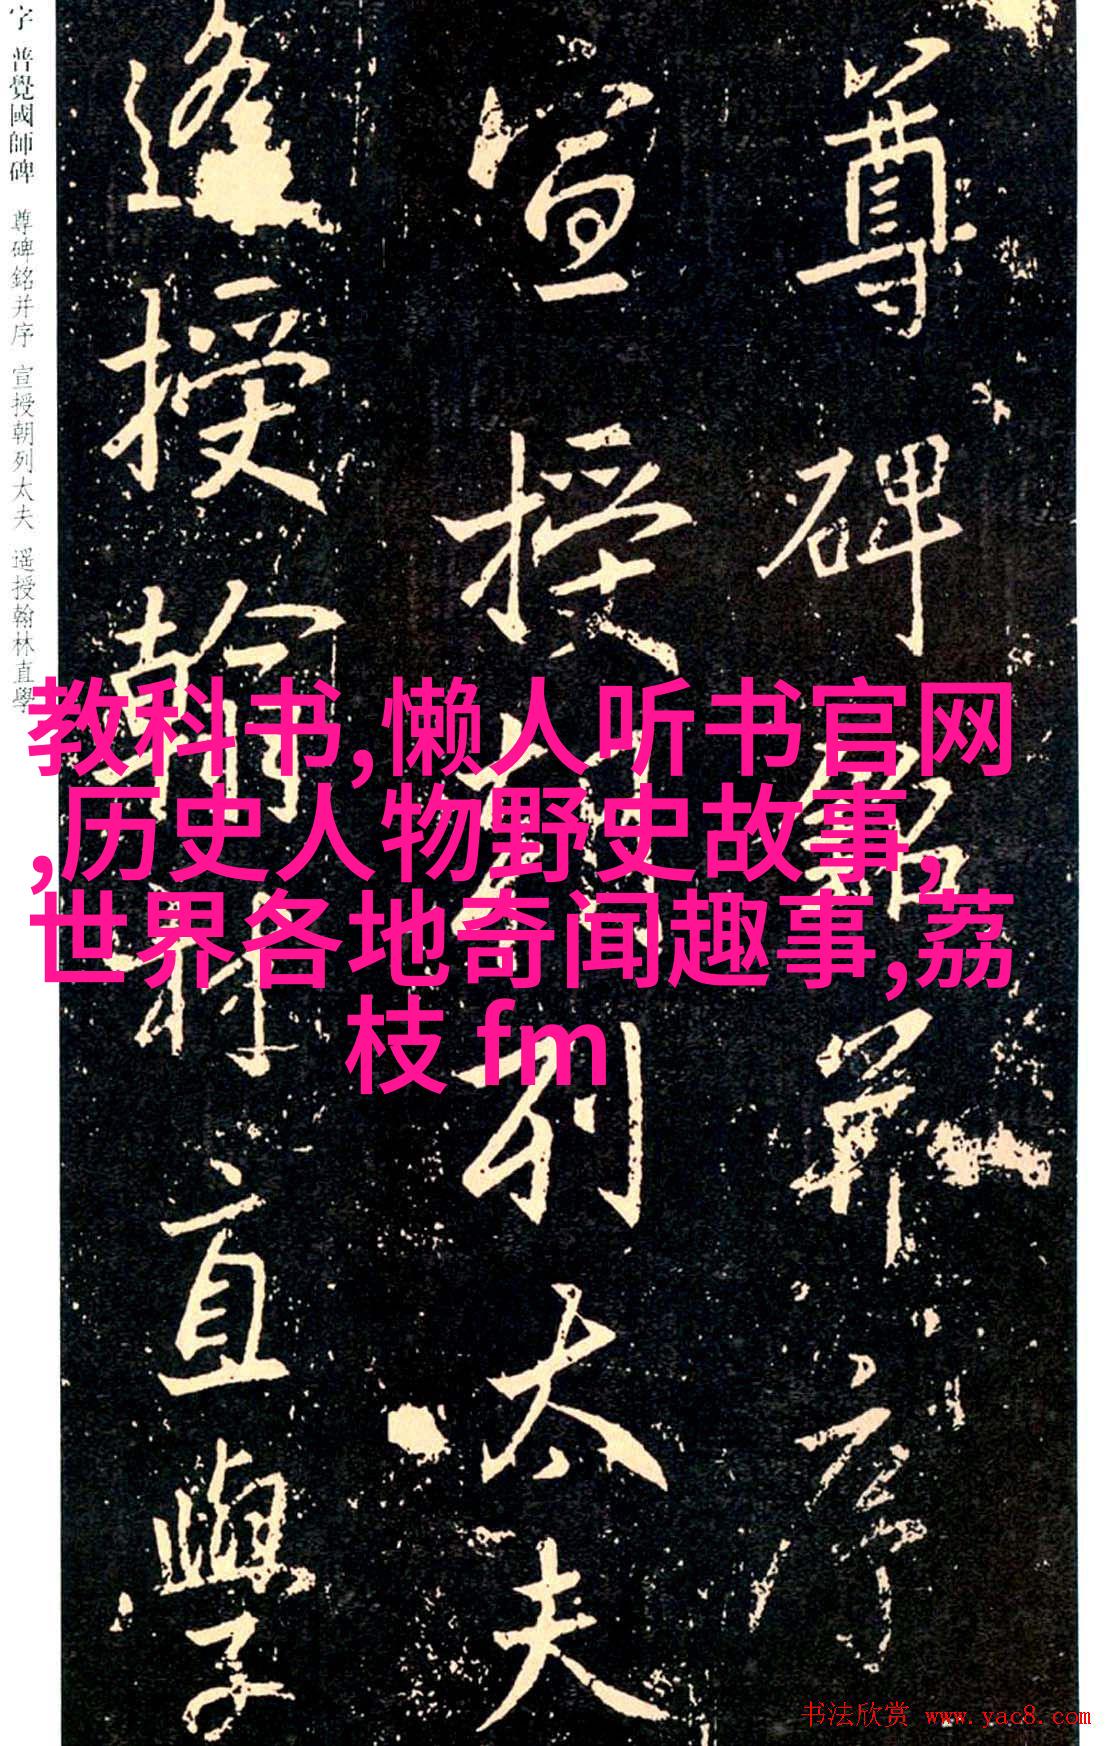 字 普覺國師碑 尊碑銘并序 宣授朝列太夫 遥授翰林直學
尊碑銘并序
宣授朝列太夫
遙授翰林直學
教科书,懒人听书官网
,历史人物野史故事,
世界各地奇闻趣事,荔
枝 fm
书法欣赏 www.yac8.com